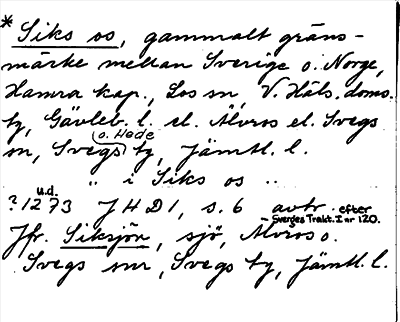 * Siks os, gammalt gräns-
märke mellan Sverige o. Norge,
Hamra kap., Los sn, V. Häls. doms.
tg, Gävleb. l. el. Älvros el. Svegs
o. Hede
sn, Svegs tg, Jämtl. l.
" i Siks os ..
u.d.
? 1273 JHD 1, s. 6 avtr. efter
Sverges Trakt. I nr 120.
Jfr. Siksjön, sjö, Älvros o.
Svegs snr, Svegs tg, Jämtl. l.